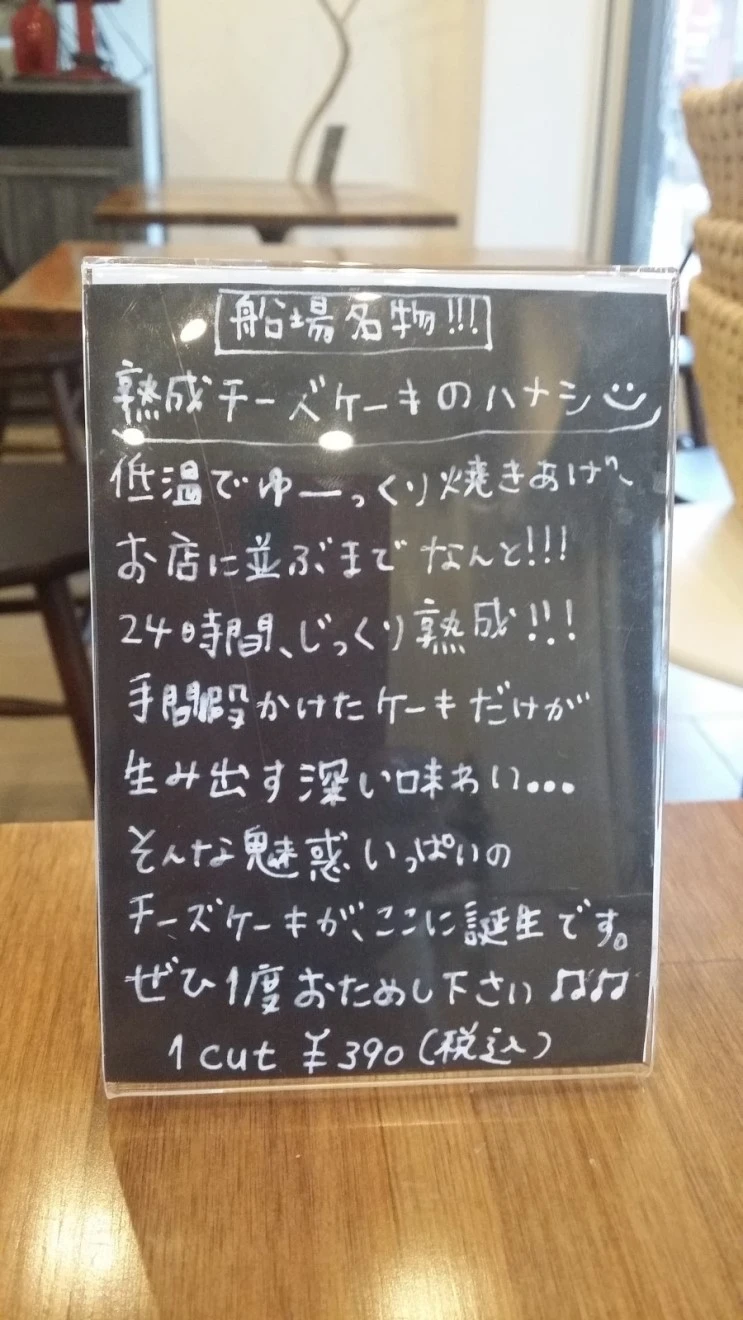 船場名物!!!
熟成チーズケーキのハナシ
低温でゆーっくり焼きあげ、
お店に並ぶまで なんと!!!
24時間、じっくり熟成!!!
手間暇かけたケーキだけが
生み出す深い味わい...
そんな魅惑いっぱいの
チーズケーキが、ここに誕生です。
ぜひ1度おためし下さい ♫♫
1cut ¥390(税込)